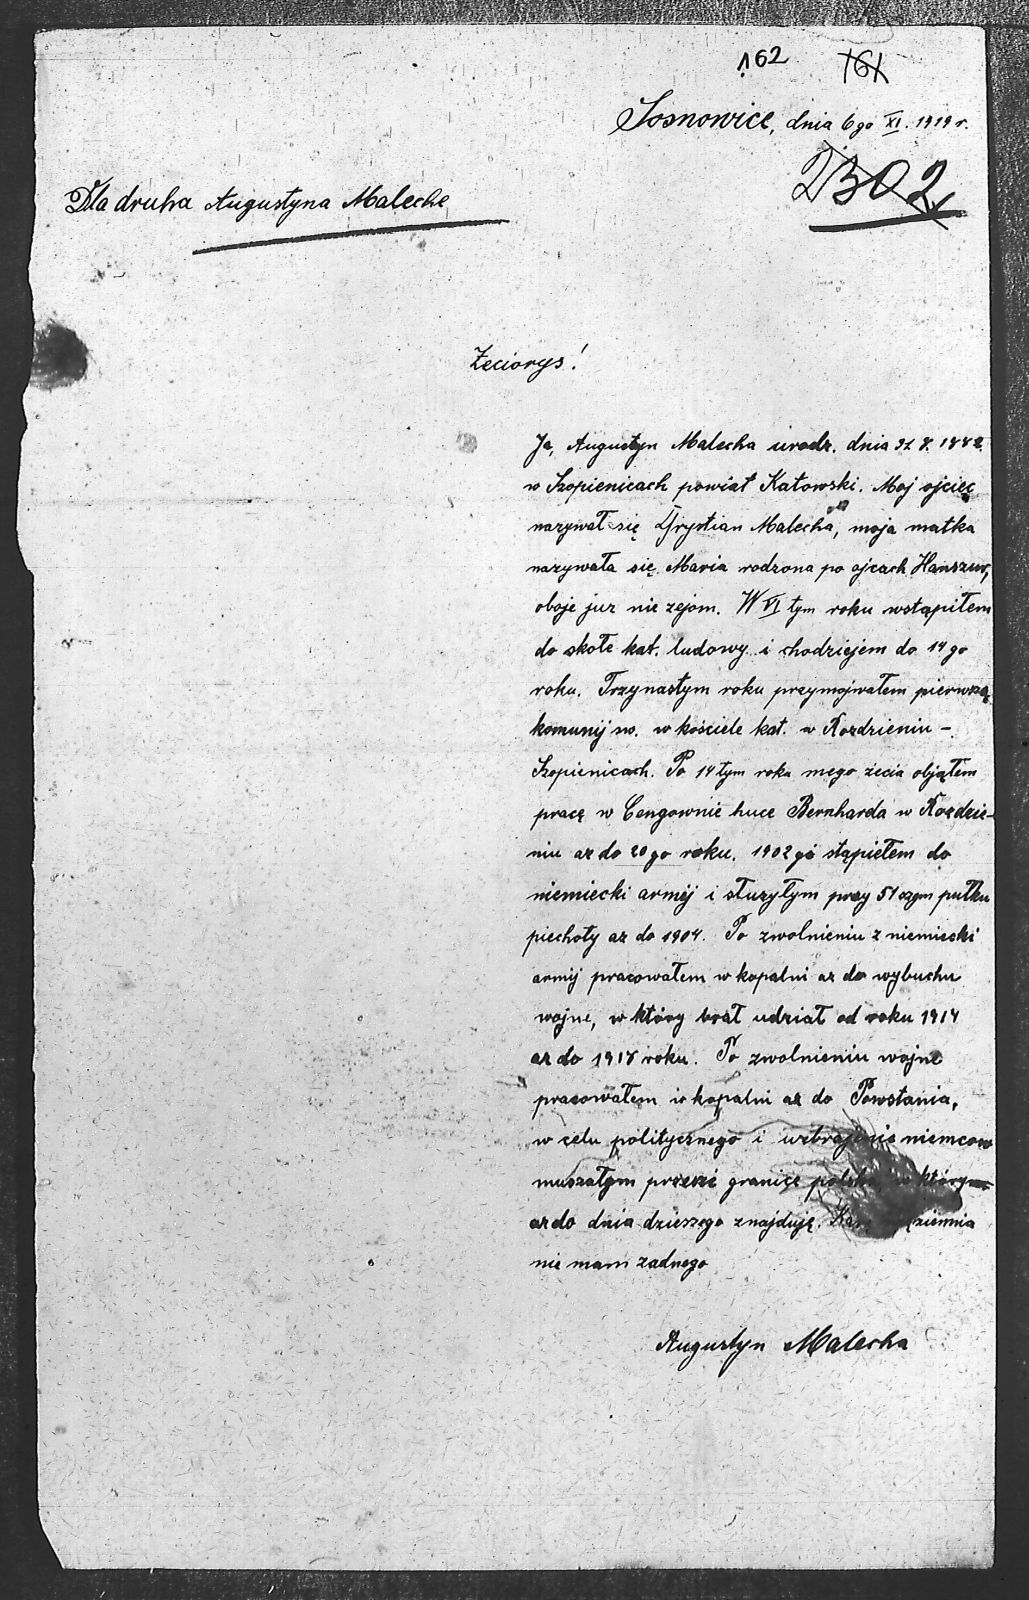 162 161
Sosnowice, dnia 6go XI. 1919 r.
2302
Dla druha Augustyna Maleche
Zeciorys!
Ja, Augustyn Malecha urodz. dnia 31 8. 1882.
w Szopienicach powiat Katowski. Moj ojciec
nazywał się Krystian Malecha, moja matka
nazywała się Maria rodzona po ojcach Hanszur,
oboje juz nie zejom. W VI tym roku wstąpiłem
do skołe kat. ludowy i chodziejem do 14 go
roku. Trzynastym roku przymojwałem pierwszą
komunij św. w kościele kat. w Rozdzieniu –
Szopienicach. Po 14 tym roku mego żecia objąłem
pracę w Cengownie huce Bernharda w Rozdzie-
niu az do 20 go roku. 1902 gó stąpiełem do
niemiecki armij i służyłym przy 51 szym pułku
piechoty az do 1904. Po zwolnieniu z niemiecki
armij pracowałem w kopalni az do wybuchu
wojne, w który brał udział od roku 1914
az do 1918 roku. Po zwolnieniu wojne
pracowałem w kopalni az do Powstania,
w celu politycznego i uzbrojenie niemcow
muszałym przeszć granice w którym
az do dnia dzieszego znajduję.
nie mam żadnego
Augustyn Malecha